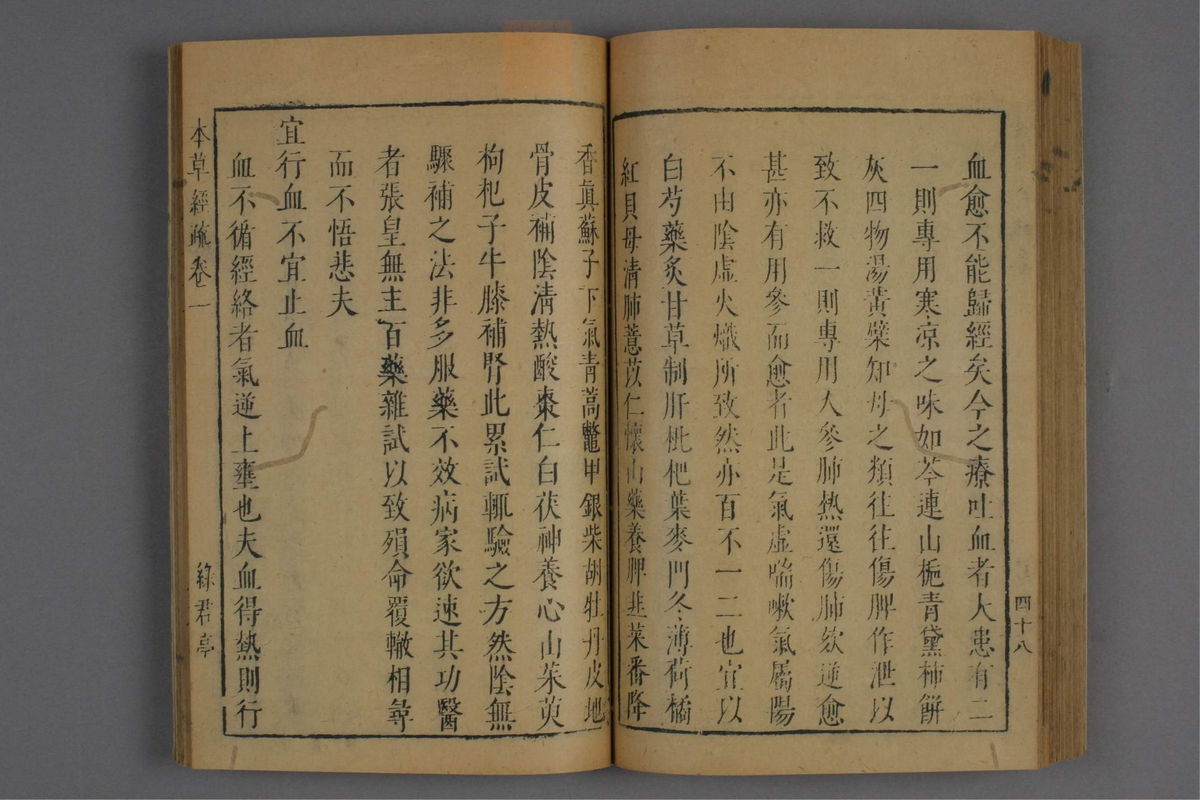 血愈不能歸經矣今之療吐血者大患有二
一則專用寒凉之味如芩連山梔青黛柿餅
灰四物湯黃蘗知母之類往往傷脾作泄以
致不救一則專用人參肺熱還傷肺欬逆愈
甚亦有用參而愈者此是氣虛喘嗽氣屬陽
不由陰虛火熾所致然亦百不一二也宜以
白芍藥炙甘草制肝枇杷葉麥門冬薄荷橘
紅貝母清肺薏苡仁懷山藥養脾韭菜番降
香眞蘇子下氣青蒿鼈甲銀柴胡牡丹皮地
骨皮補陰清熱酸棗仁白茯神養心山茱萸
枸杞子牛膝補腎此累試輒驗之方然陰無
驟補之法非多服藥不效病家欲速其功醫
者張皇無主百藥雜試以致殞命覆轍相尋
而不悟悲夫
宜行血不宜止血
血不循經絡者氣逆上壅也夫血得熱則行
本草經疏卷一
綠君亭
四十八